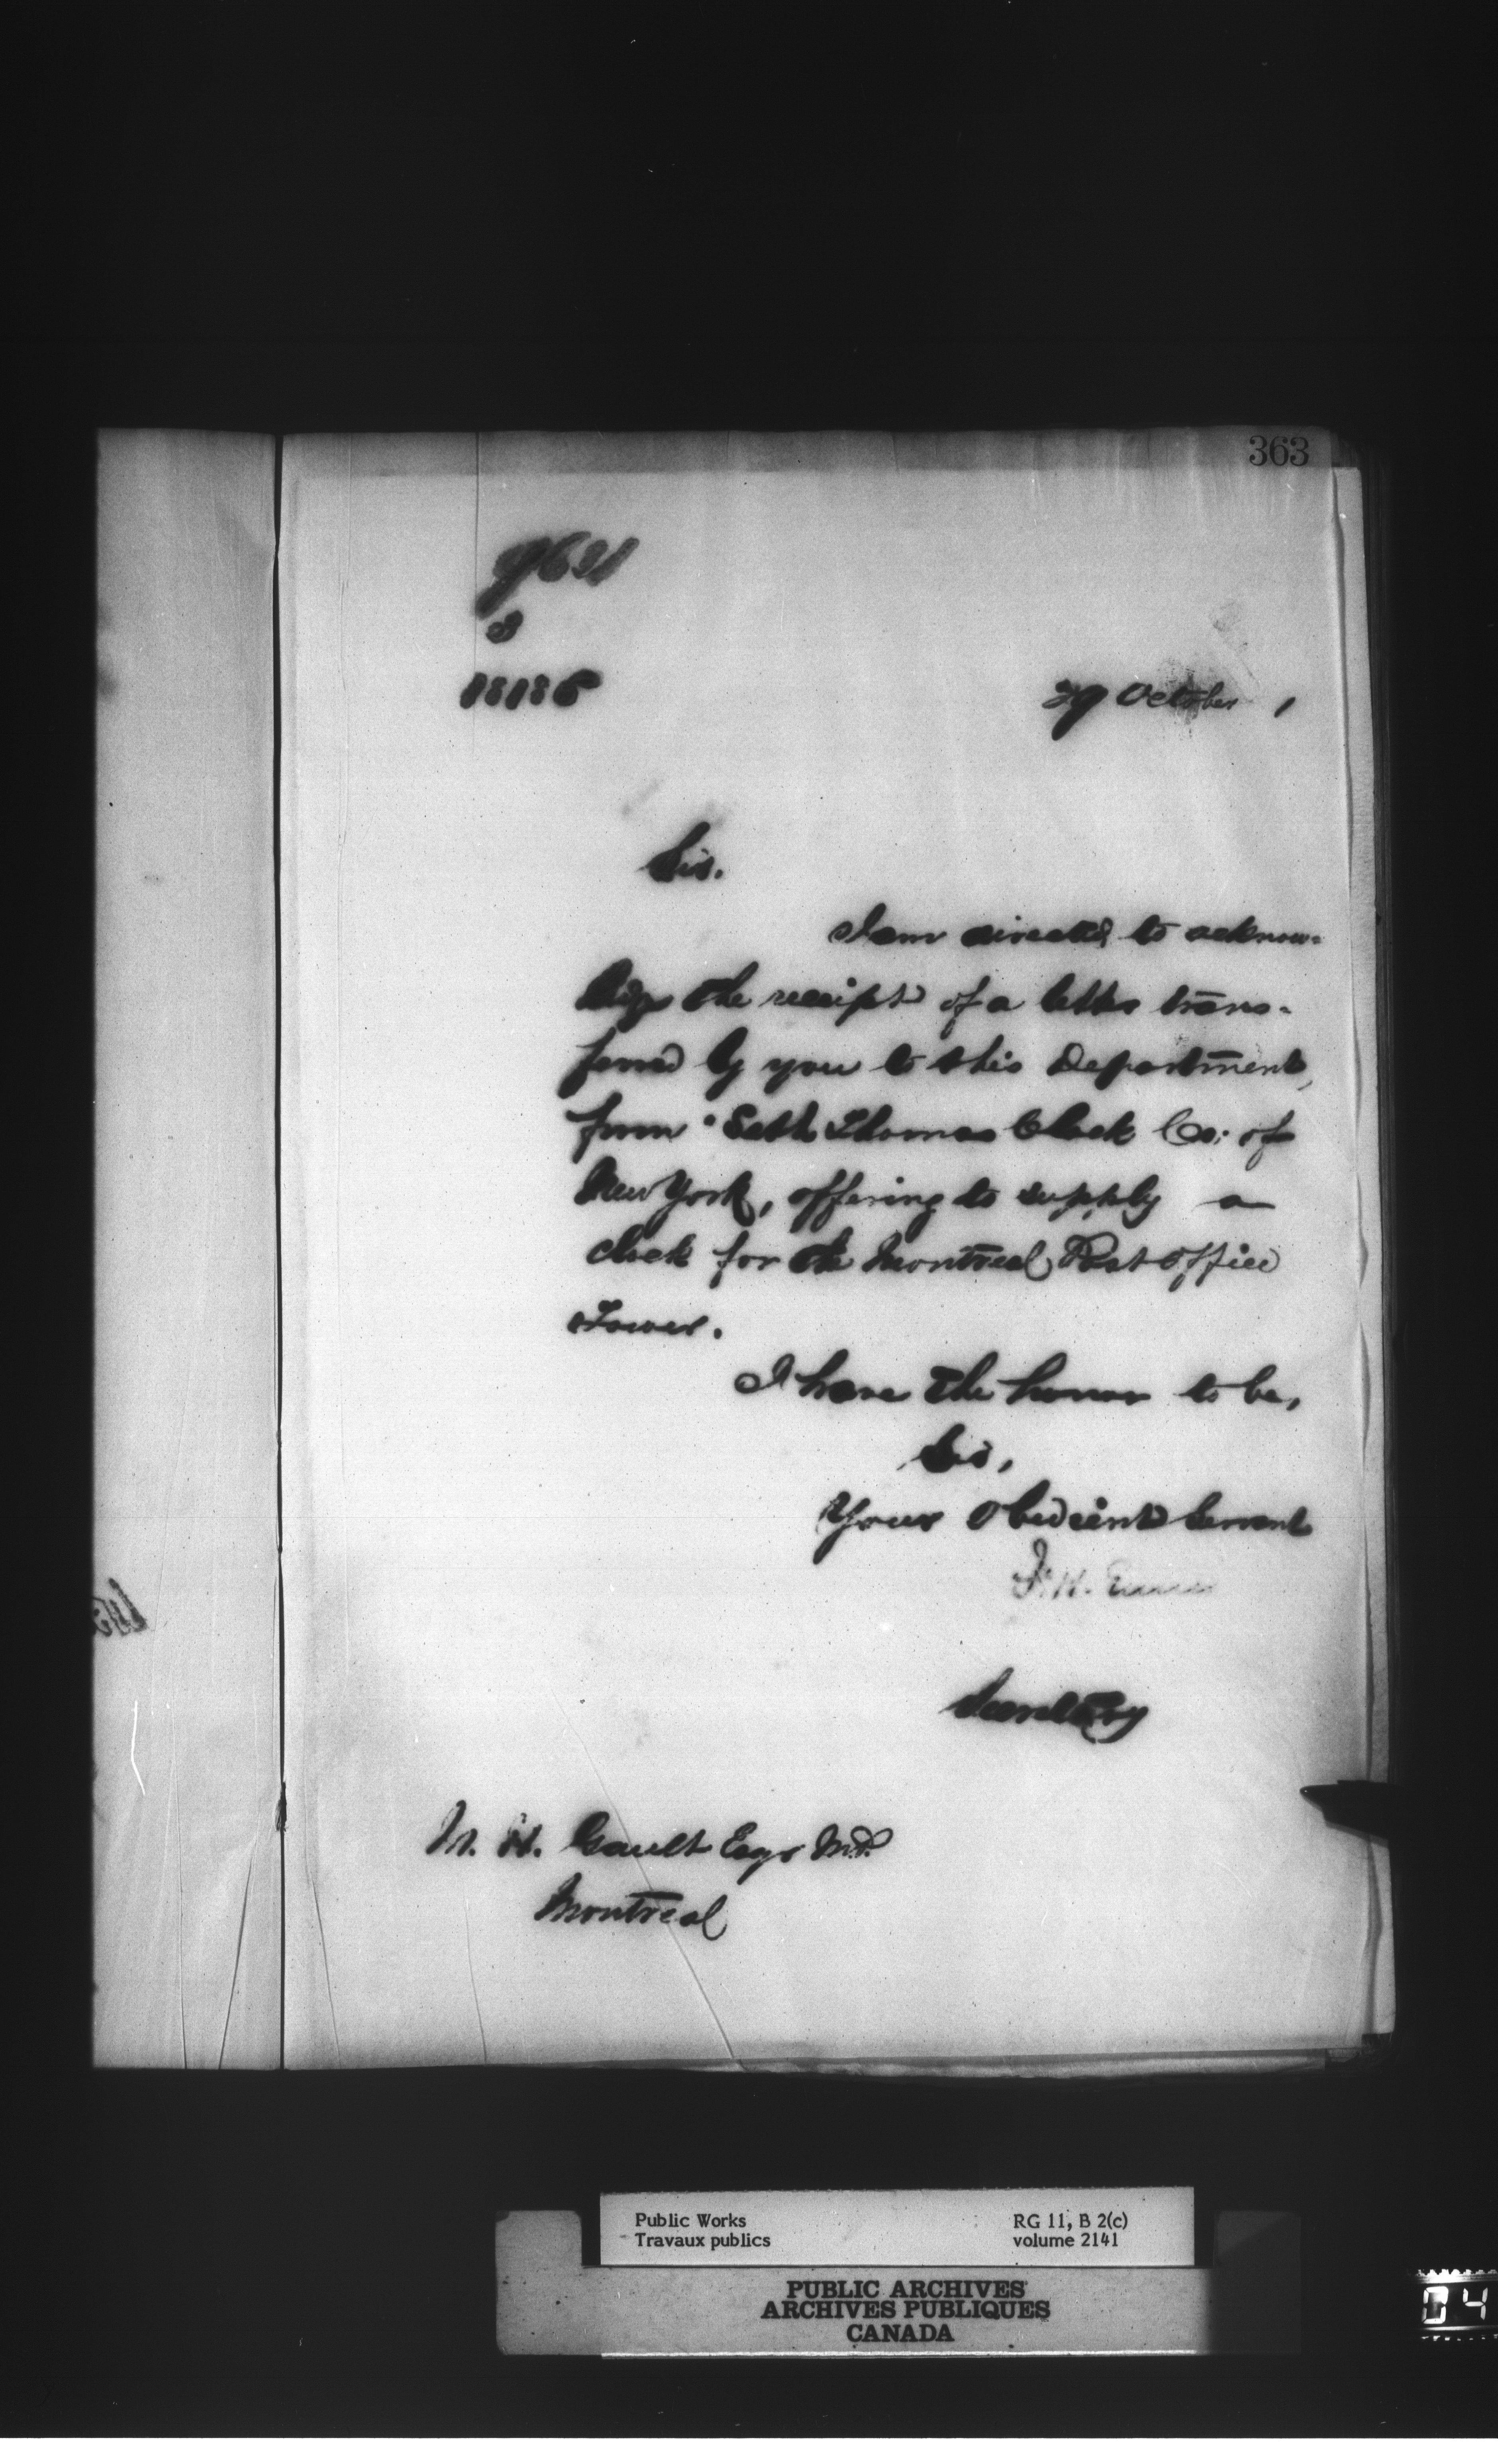 363
9631
18186
29 October 1
Sir.
I am directed to acknow-
ledge the receipt of a letter trans-
ferred by you to this Department,
from "Seth Thomas Clock Co: of
New York, offering to supply a
clock for the Montreal Post Office
Tower.
I have the honor to be,
Sir,
Your Obedient Servant
F. H. Ennis
Secretary
M. H. Gault Esqr M.P.
Montreal
Public Works
Travaux publics
RG 11, B 2(c)
volume 2141
PUBLIC ARCHIVES
ARCHIVES PUBLIQUES
CANADA
04